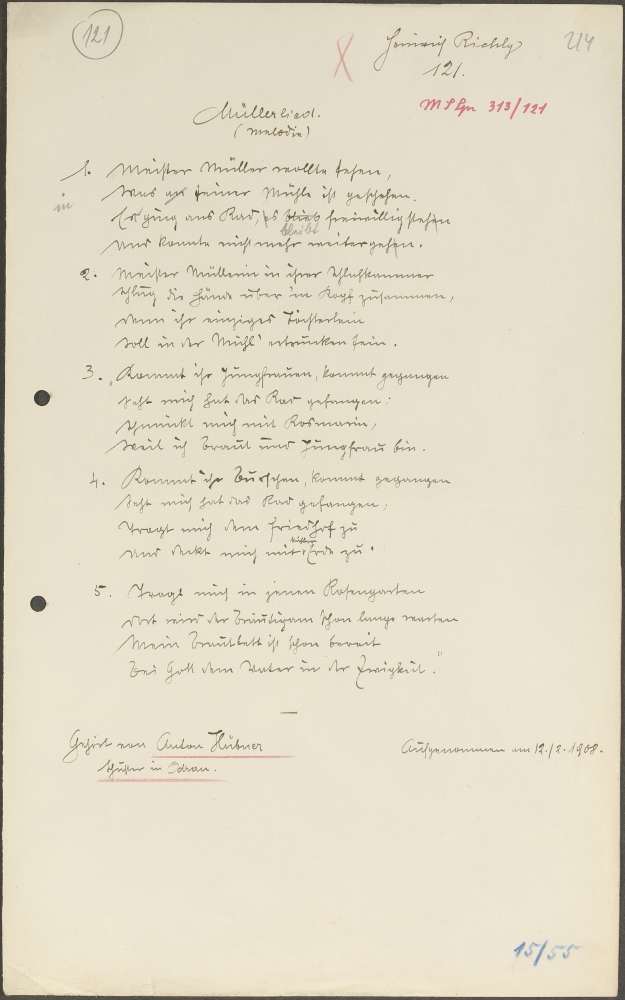 121
Heinrich Richly
114
121.
MSgn 313/121
Müllerlied.
(Melodie)
1. Meister Müller wollte sehen,
in
Was an seiner Mühle ist geschehen.
Er ging ans Rad, es blieb freiwillig stehn
bleibt
Und konnte nicht mehr weitergehen.
2. Meister Müllerin in ihrer Schlafkammer
Schlug die Hände über'm Kopf zusammen,
Denn ihr einziges Töchterlein
Soll in der Mühl' ertrunken sein.
3. „Kommt ihr Jungfrauen, kommt gegangen
Seht mich hat das Rad gefangen;
Schmückt mich mit Rosmarin,
Weil ich Braut und Jungfrau bin.
4. Kommt ihr Burschen, kommt gegangen
Seht mich hat das Rad gefangen,
Tragt mich dem Friedhof zu
Und deckt mich mit Erde zu.
5. Tragt mich in jenen Rosengarten
Dort wird der Bräutigam schon lange warten
Mein Brautbett ist schon bereit
Bei Gott dem Vater in der Ewigkeit."
Gehört von Anton Hübner
Schuster in Odrau.
Aufgenommen am 12./2. 1908.
15/55